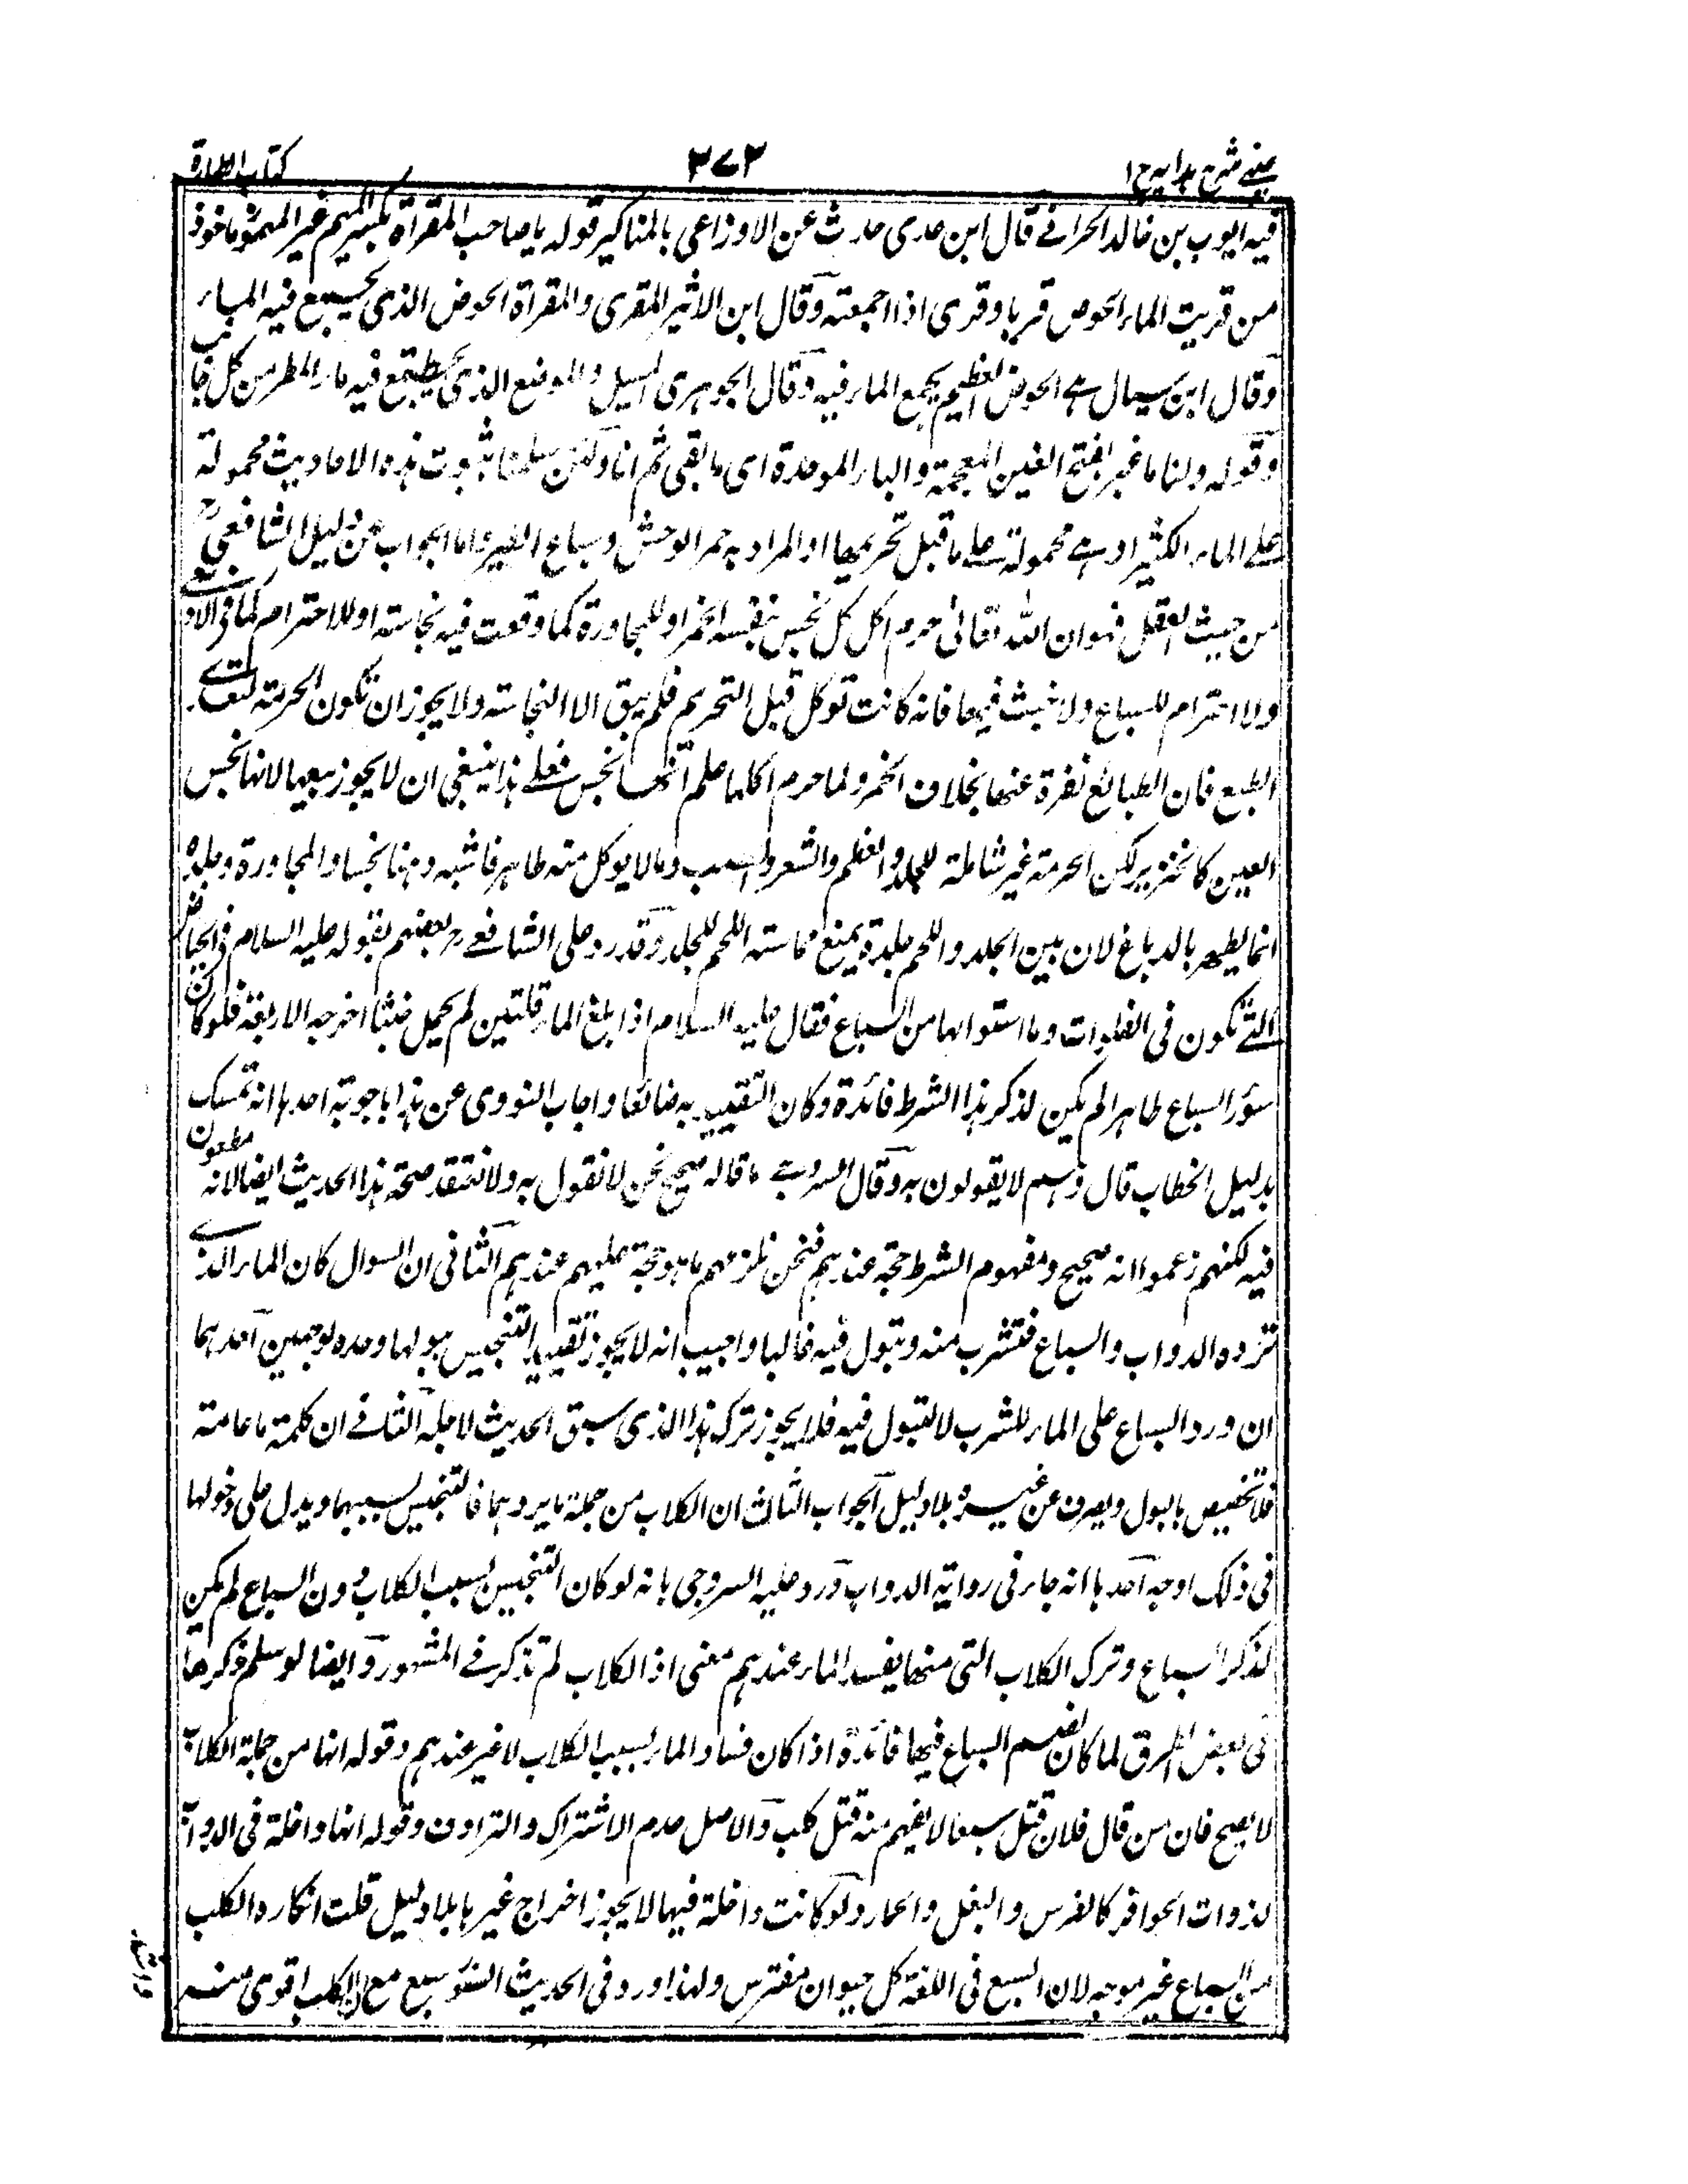 عینے شرح ہدایہ ج ۱
۳۷۲
کتاب الطهارة
فيه ايوب بن خالد الحرانے قال ابن عدى حدث عن الاوزاعى بالمناكير قوله يا صاحب المقراة بكسر الميم غير المهموز ماخوذ
من قريت الماء الحوض قربا وقرى اذا اجمعته وقال ابن الاثير المقرى والمقراة الحوض الذى يجتمع فيه الماء
وقال ابن سيال هے الحوض العظيم يجمع الماء فيه وقال الجوهرى المسيل والموضع الذى يجتمع فيه ماء المطر من كل جانب
وقوله ولنا ما غبر بفتح الغين المعجمة والباء الموحدة اى ما بقى ثم انا ولئن سلمنا ثبوت هذه الاحاديث محمولة
علے الماء الكثير او هے محمولة علے ما قبل تحريمها او المراد به حمر الوحش وسباع الطير واما الجواب عن دليل الشافعى رح
من حيث العقل فهو ان الله تعالىٰ حرم اكل كل نجس بنفسه الخمر او للمجاورة كما وقعت فيه نجاسته او للاحترام كما فى الآدمى
ولا احترام للسباع ولا خبث فيها فانه كانت توكل قبل التحريم فلم يبق الا النجاسته ولا يجوز ان تكون الحرمته لتعدے
الطبع فان الطبائع نفرة عنها بخلاف الخمر ولما حرم اكلها علم انها نجس فعلے هذا ينبغى ان لا يجوز بيعها لانها نجس
العين كالخنزير لكن الحرمة غير شاملة للجلد والعظم والشعر والعصب وما لا يوكل منه طاهر فاشبه دهنا نجسا والمجاورة وجلده
انما يطهر بالدباغ لان بين الجلد واللحم جلدة يمنع مماسته اللحم للجلد وقد رد على الشافعے رح بعضهم بقوله عليه السلام فى الحياض
التے تكون فى الفلوات وما استوابها من السباع فقال عليه السلام اذا بلغ الماء قلتين لم يحمل خبثا اخرجه الاربعة فلو كان
سؤر السباع طاهرا لم يكن لذكر هذا الشرط فائدة وكان التقييد به ضائعا واجاب النووى عن هذا باجوبة احدها انه تمسك
بدليل الخطاب قال وهم لا يقولون به وقال السروجے ما قاله صحيح نحن لا نقول به ولا نعتقد صحة هذا الحديث ايضا لانه مطعون
فيه لكنهم زعموا انه صحيح ومفهوم الشرط حجة عندهم فنحن نلزمهم ما هو حجة عليهم عندهم الثانى ان السوال كان الماء الذے
ترده الدواب والسباع فتشرب منه وتبول فيه غالبا واجيب انه لا يجوز تقييد التنجيس ببولها وحده لوجهين احدهما
ان ورد السباع على الماء للشرب لا لتبول فيه فلا يجوز ترك هذا الذى سبق الحديث لاجله الثانے ان كلمة ما عامته
فلا تخصيص بالبول ويصرف عن غيره بلا دليل الجواب الثالث ان الكلاب من جملة ما يردهما فالتنجيس بسببها ويدل على دخولها
فى ذلك اوجه احدها انه جاء فى رواية الدواب ورد عليه السروجى بانه لو كان التنجيس بسبب الكلاب دون السباع لم يكن
لذكر السباع وترك الكلاب التى منها يفسد الماء عندهم معنى اذ الكلاب لم تذكر فے المشهور وايضا لو سلم ذكرها
فى بعض الطرق لما كان لضم السباع فيها فائدة اذا كان فساد الماء بسبب الكلاب لا غير عندهم وقوله انها من جملة الكلاب
لا يصح فان من قال فلان قتل سبعا لا يفهم منه قتل كلب والاصل عدم الاشتراك والترادف وقوله انها داخلة فى الدواب
لذوات الحوافر كالفرس والبغل والحمار ولو كانت داخلة فيها لا يجوز اخراج غيرها بلا دليل قلت انكاره الكلب
من السباع غير موجه لان السبع فى اللغة كل حيوان مفترس ولهذا ورد فى الحديث السنور سبع مع ان الكلب اقوى منه